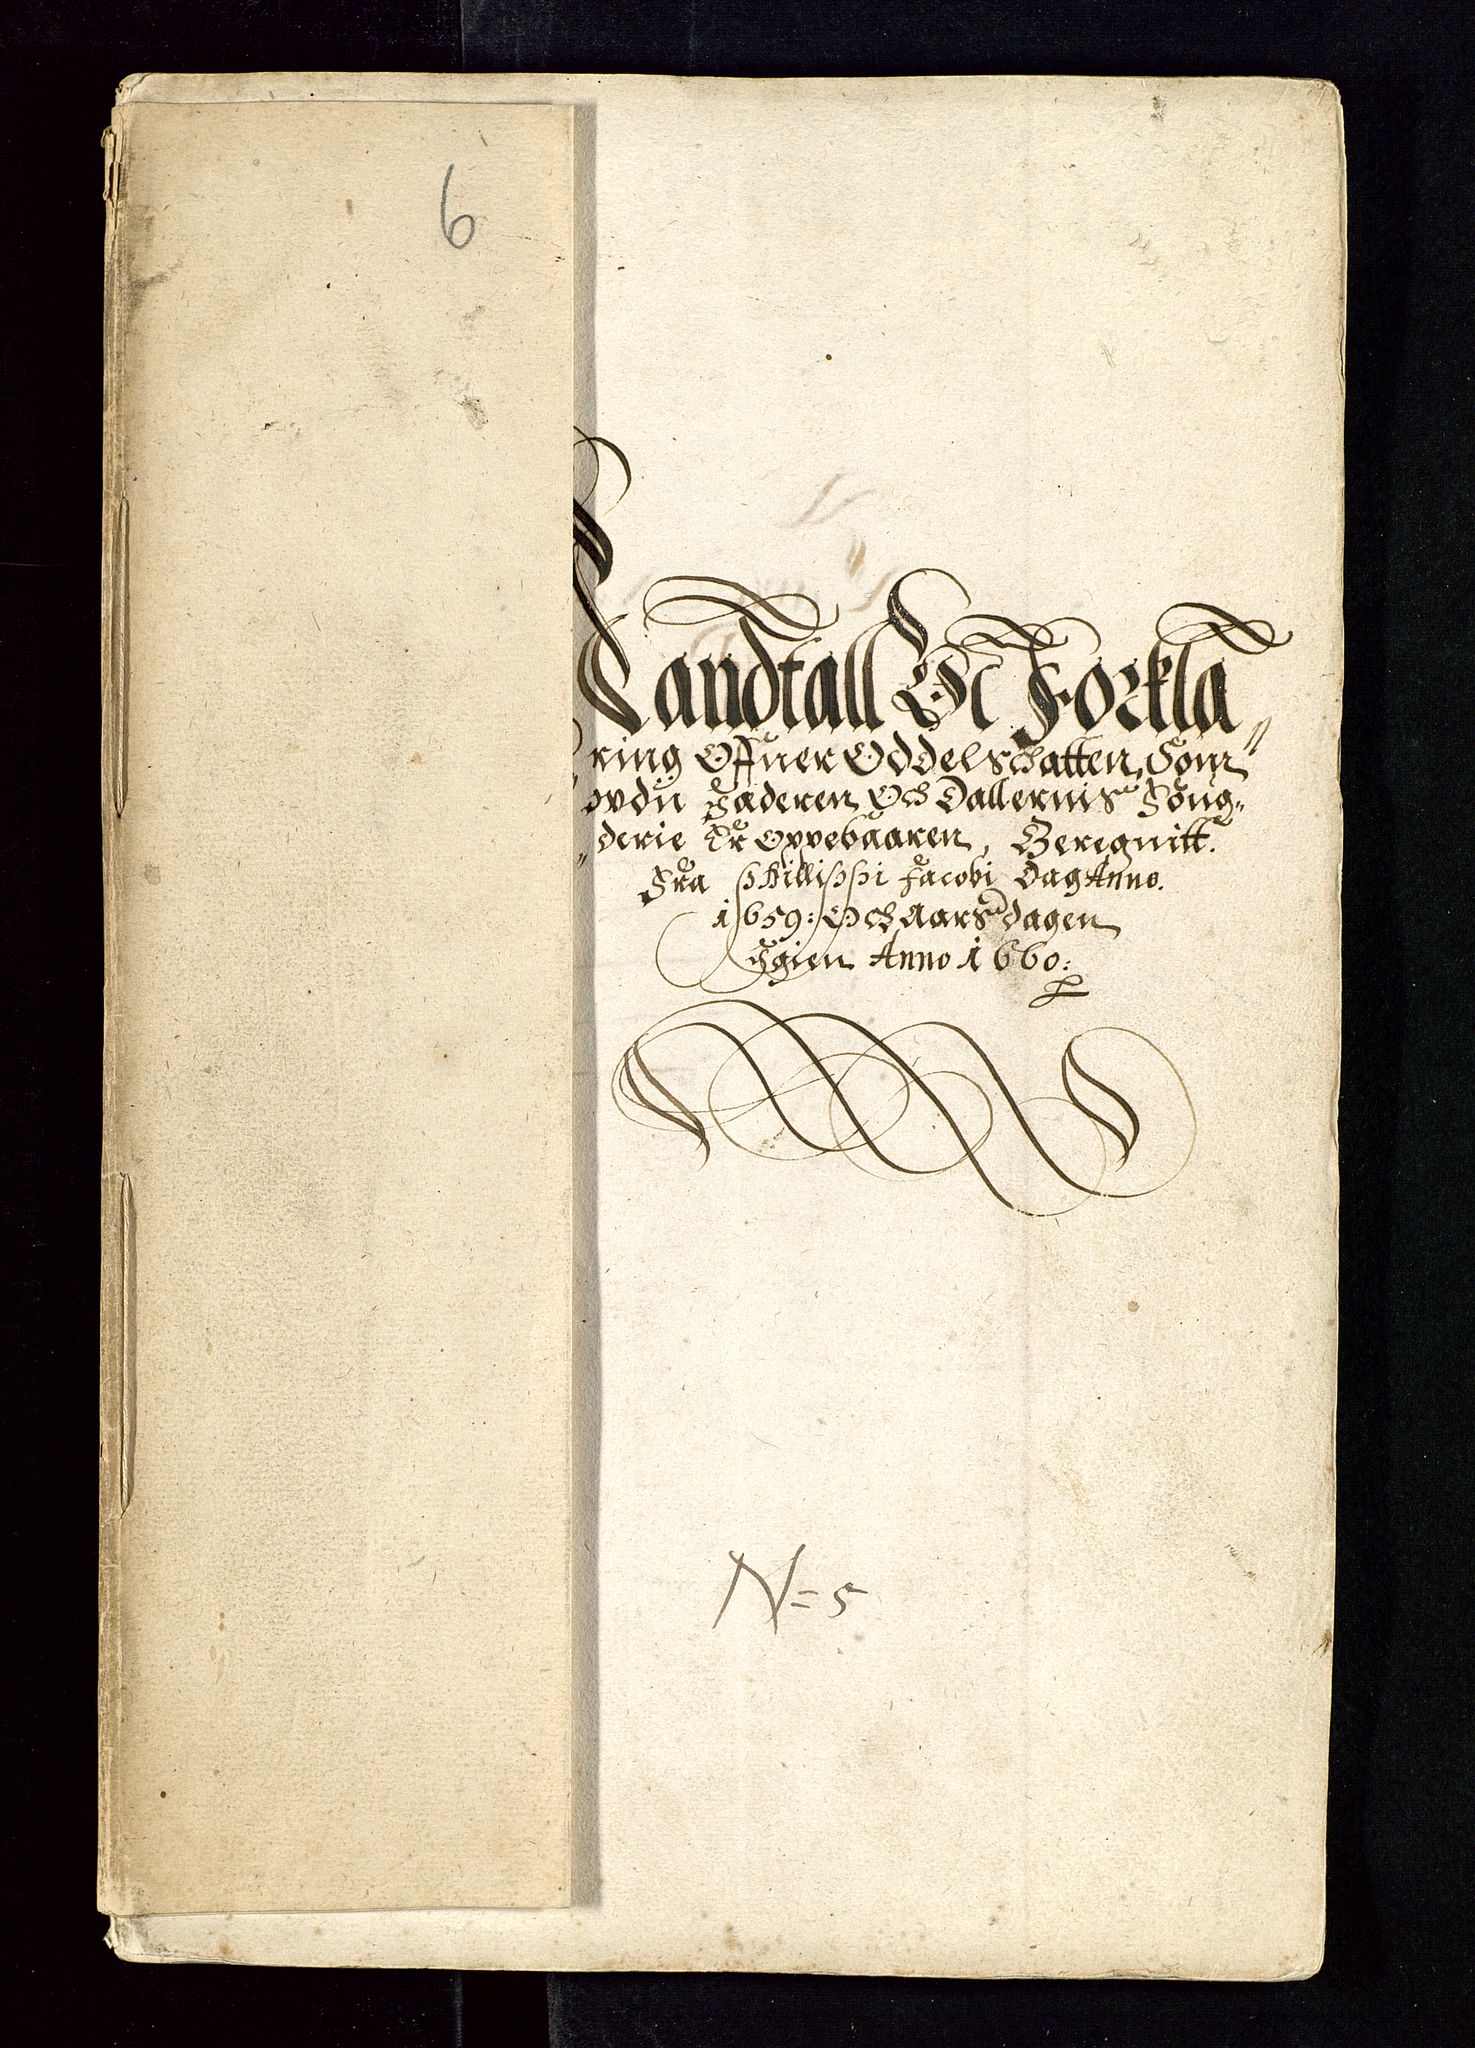 6
Landtall Oc Forkla
ring Offuer Oddelschatten, Som
vdŭ Jæderen Och Dallernis Fŏug-
derie Er Oppebaaren, Beregnitt.
Fra Phillippi Jacobi Dag Anno.
1659: Och Aars dagen
Igien Anno 1660:
N= 5